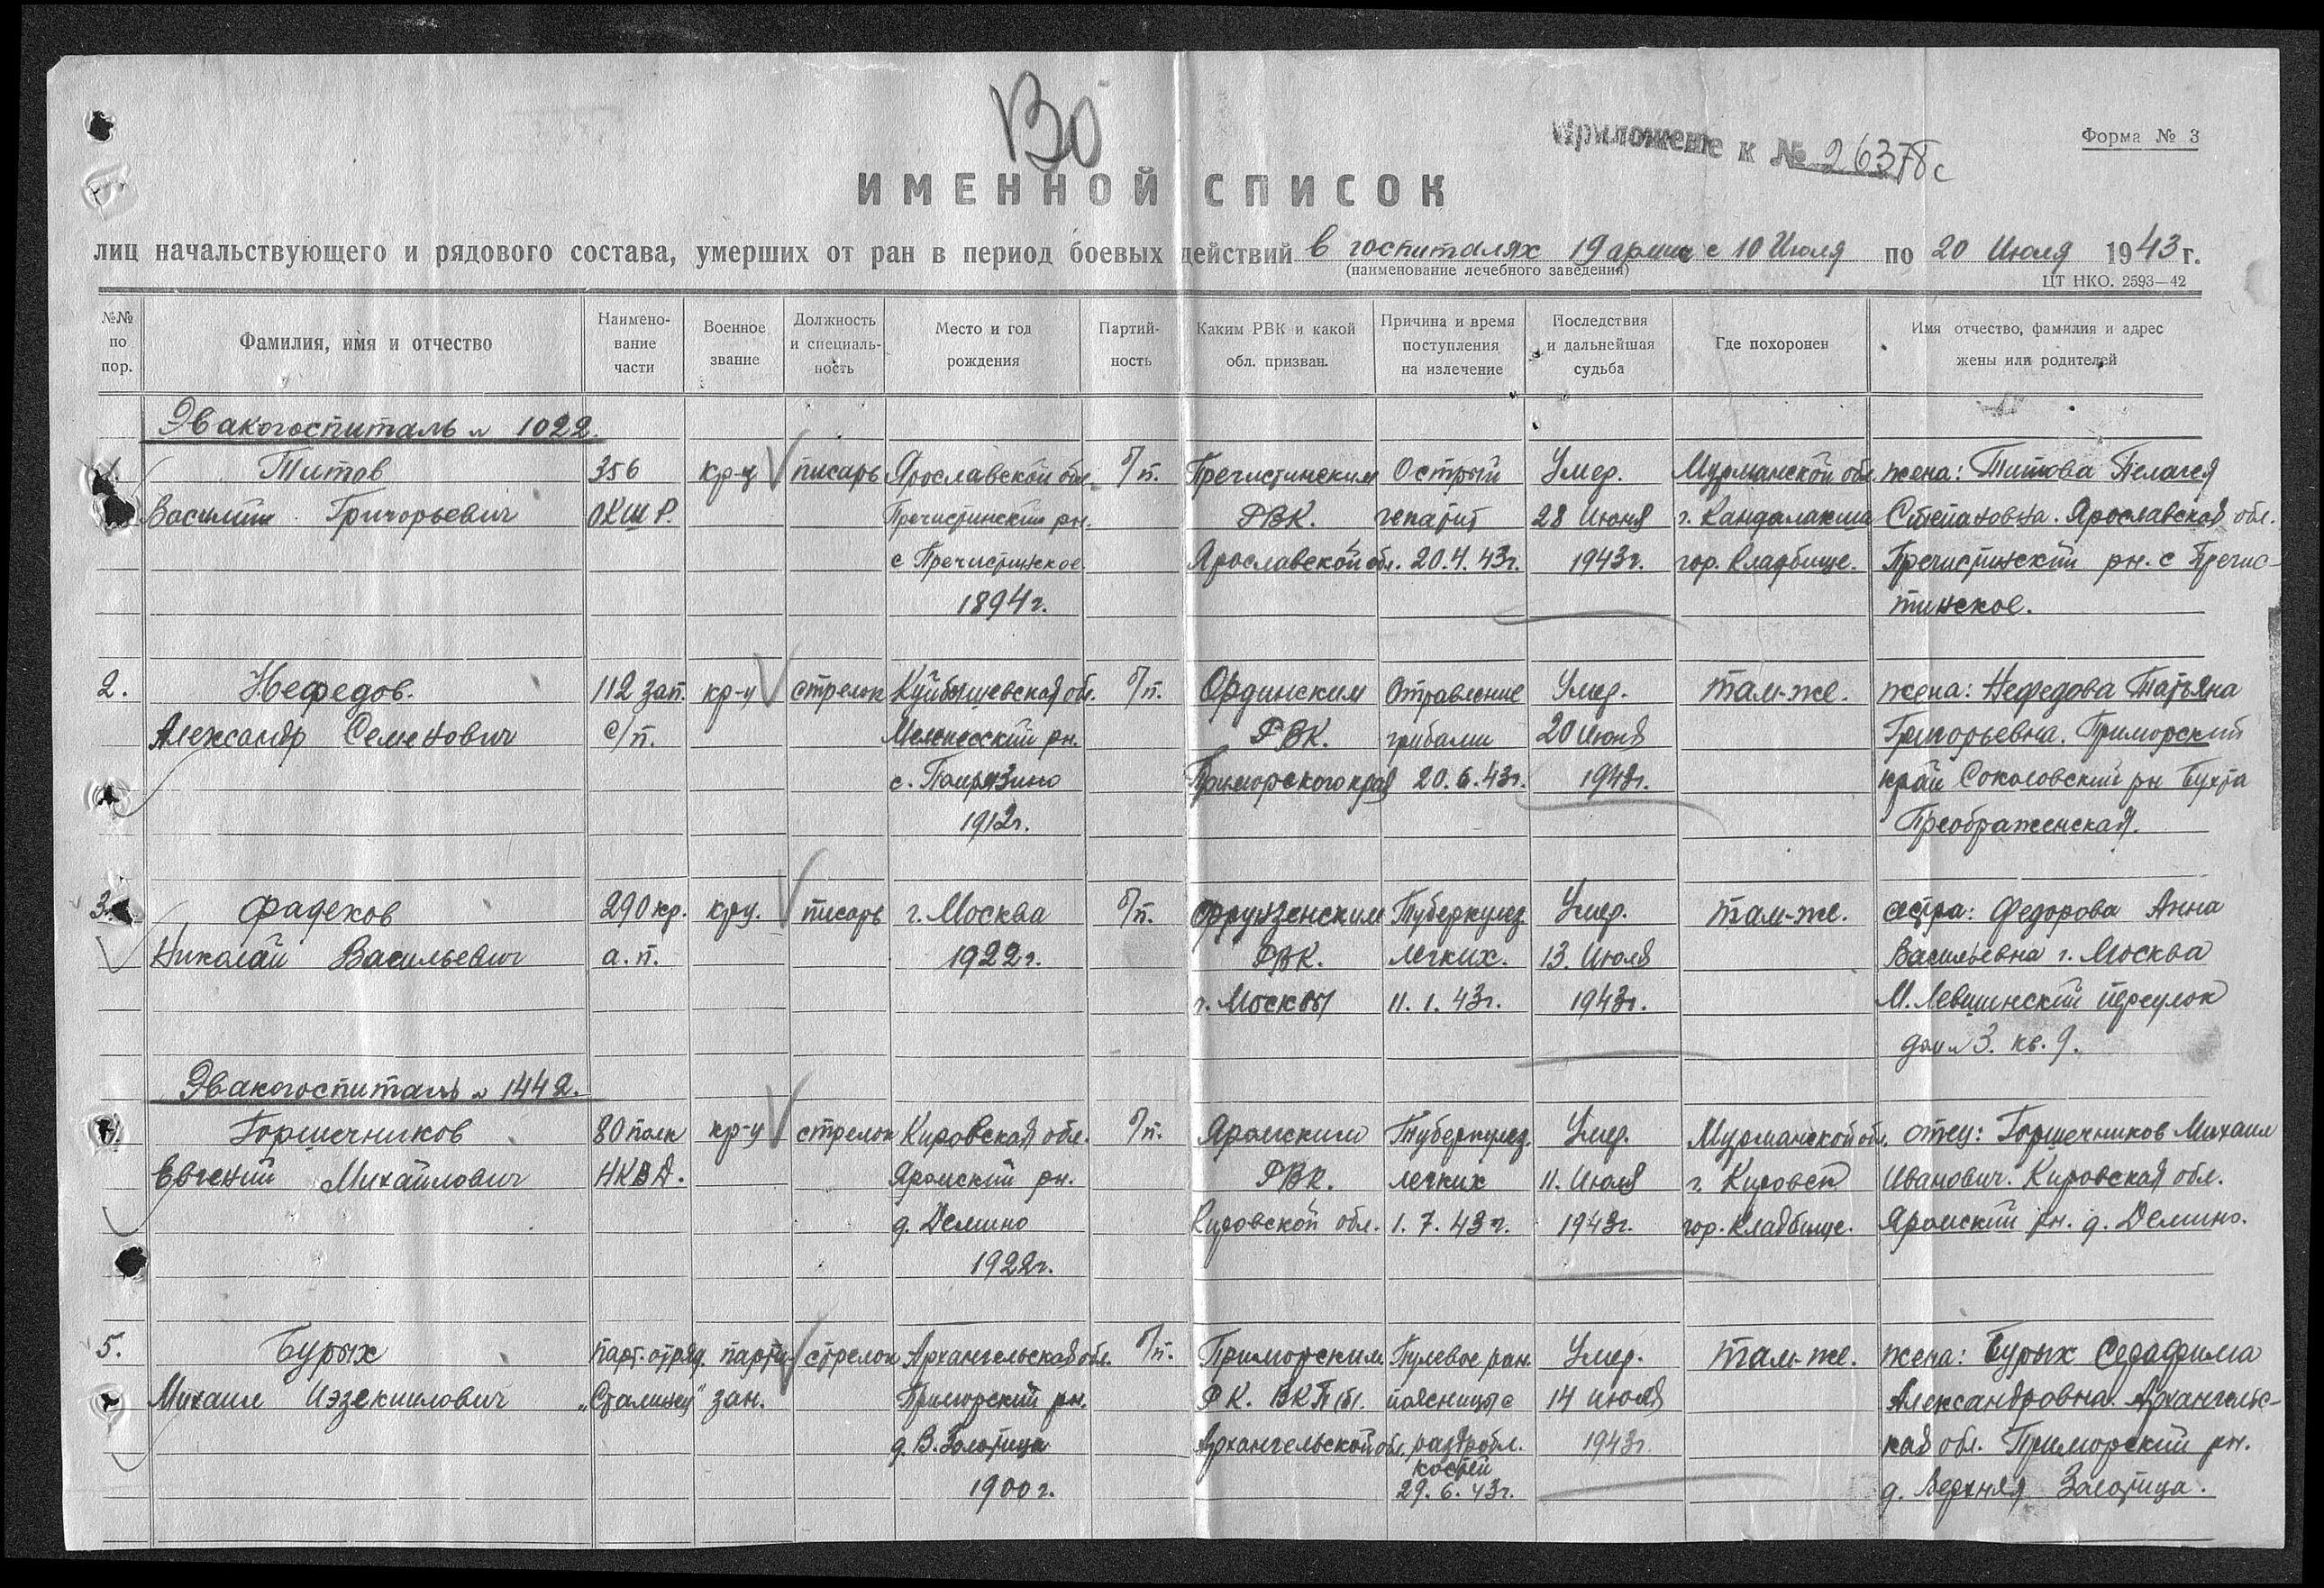 130
Приложение к № 26378с
Форма № 3
ИМЕННОЙ СПИСОК
лиц начальствующего и рядового состава, умерших от ран в период боевых действий в госпиталях 19 армии с 10 Июля по 20 Июля 1943 г.
(наименование лечебного заведения)
ЦТ НКО. 2593—42
№№ по пор.
Фамилия, имя и отчество
Наименование части
Военное звание
Должность и специальность
Место и год рождения
Партийность
Каким РВК и какой обл. призван.
Причина и время поступления на излечение
Последствия и дальнейшая судьба
Где похоронен
Имя отчество, фамилия и адрес жены или родителей
Эвакогоспиталь № 1022.
Титов 356 кр-ц писарь Ярославской обл. б/п. Пречистинским Острый Умер. Мурманской обл. жена: Титова Пелагея
Василий Григорьевич ОКШР. Пречистинский рн. РВК. гепатит 28 Июня г. Кандалакша Степановна. Ярославская обл.
с Пречистинское Ярославской обл. 20.4.43г. 1943г. гор. кладбище. Пречистинский рн. с Пречис-
1894г. тинское.
2. Нефедов. 112 зап. кр-ц стрелок Куйбышевская обл. б/п. Ординским Отравление Умер. там-же. жена: Нефедова Татьяна
Александр Семенович с/п. Мелекесский рн. РВК. грибами 20 Июня Григорьевна. Приморский
с. Приморского края 20.6.43г. 1943г. край Соколовский рн Бухта
1912г. Преображенская.
3. Фадеков 290 кр. крц. писарь г. Москва б/п. Фрунзенским Туберкулез Умер. там-же. сестра: Федорова Анна
Николай Васильевич а.п. 1922г. РВК. легких. 13. Июля Васильевна г. Москва
г. Москвы 11.1.43г. 1943г. М. Левшинский переулок
дом № 3. кв. 9.
Эвакогоспиталь № 1442.
4. Горшечников 80 полк кр-ц стрелок Кировская обл. б/п. Яранским Туберкулез Умер. Мурманской обл. отец: Горшечников Михаил
Евгений Михайлович НКВД. Яранский рн. РВК. легких 11. Июля г. Кировск Иванович. Кировская обл.
д. Демино Кировской обл. 1.7.43г. 1943г. гор. кладбище. Яранский рн. д. Демино.
1922г.
5. Бурых парт. отряд. парти- стрелок Архангельская обл. б/п. Приморским Пулевое ран. Умер. там-же. жена: Бурых Серафима
Михаил Иэзекиилович „Сталинец" зан. Приморский рн. РК. ВКП(б). поясницы с 14 июля Александровна. Архангельс-
д. В. Золотица Архангельской обл. раздробл. 1943г. кая обл. Приморский рн.
костей
1900г. 29.6.43г. д. Верхняя Золотица.